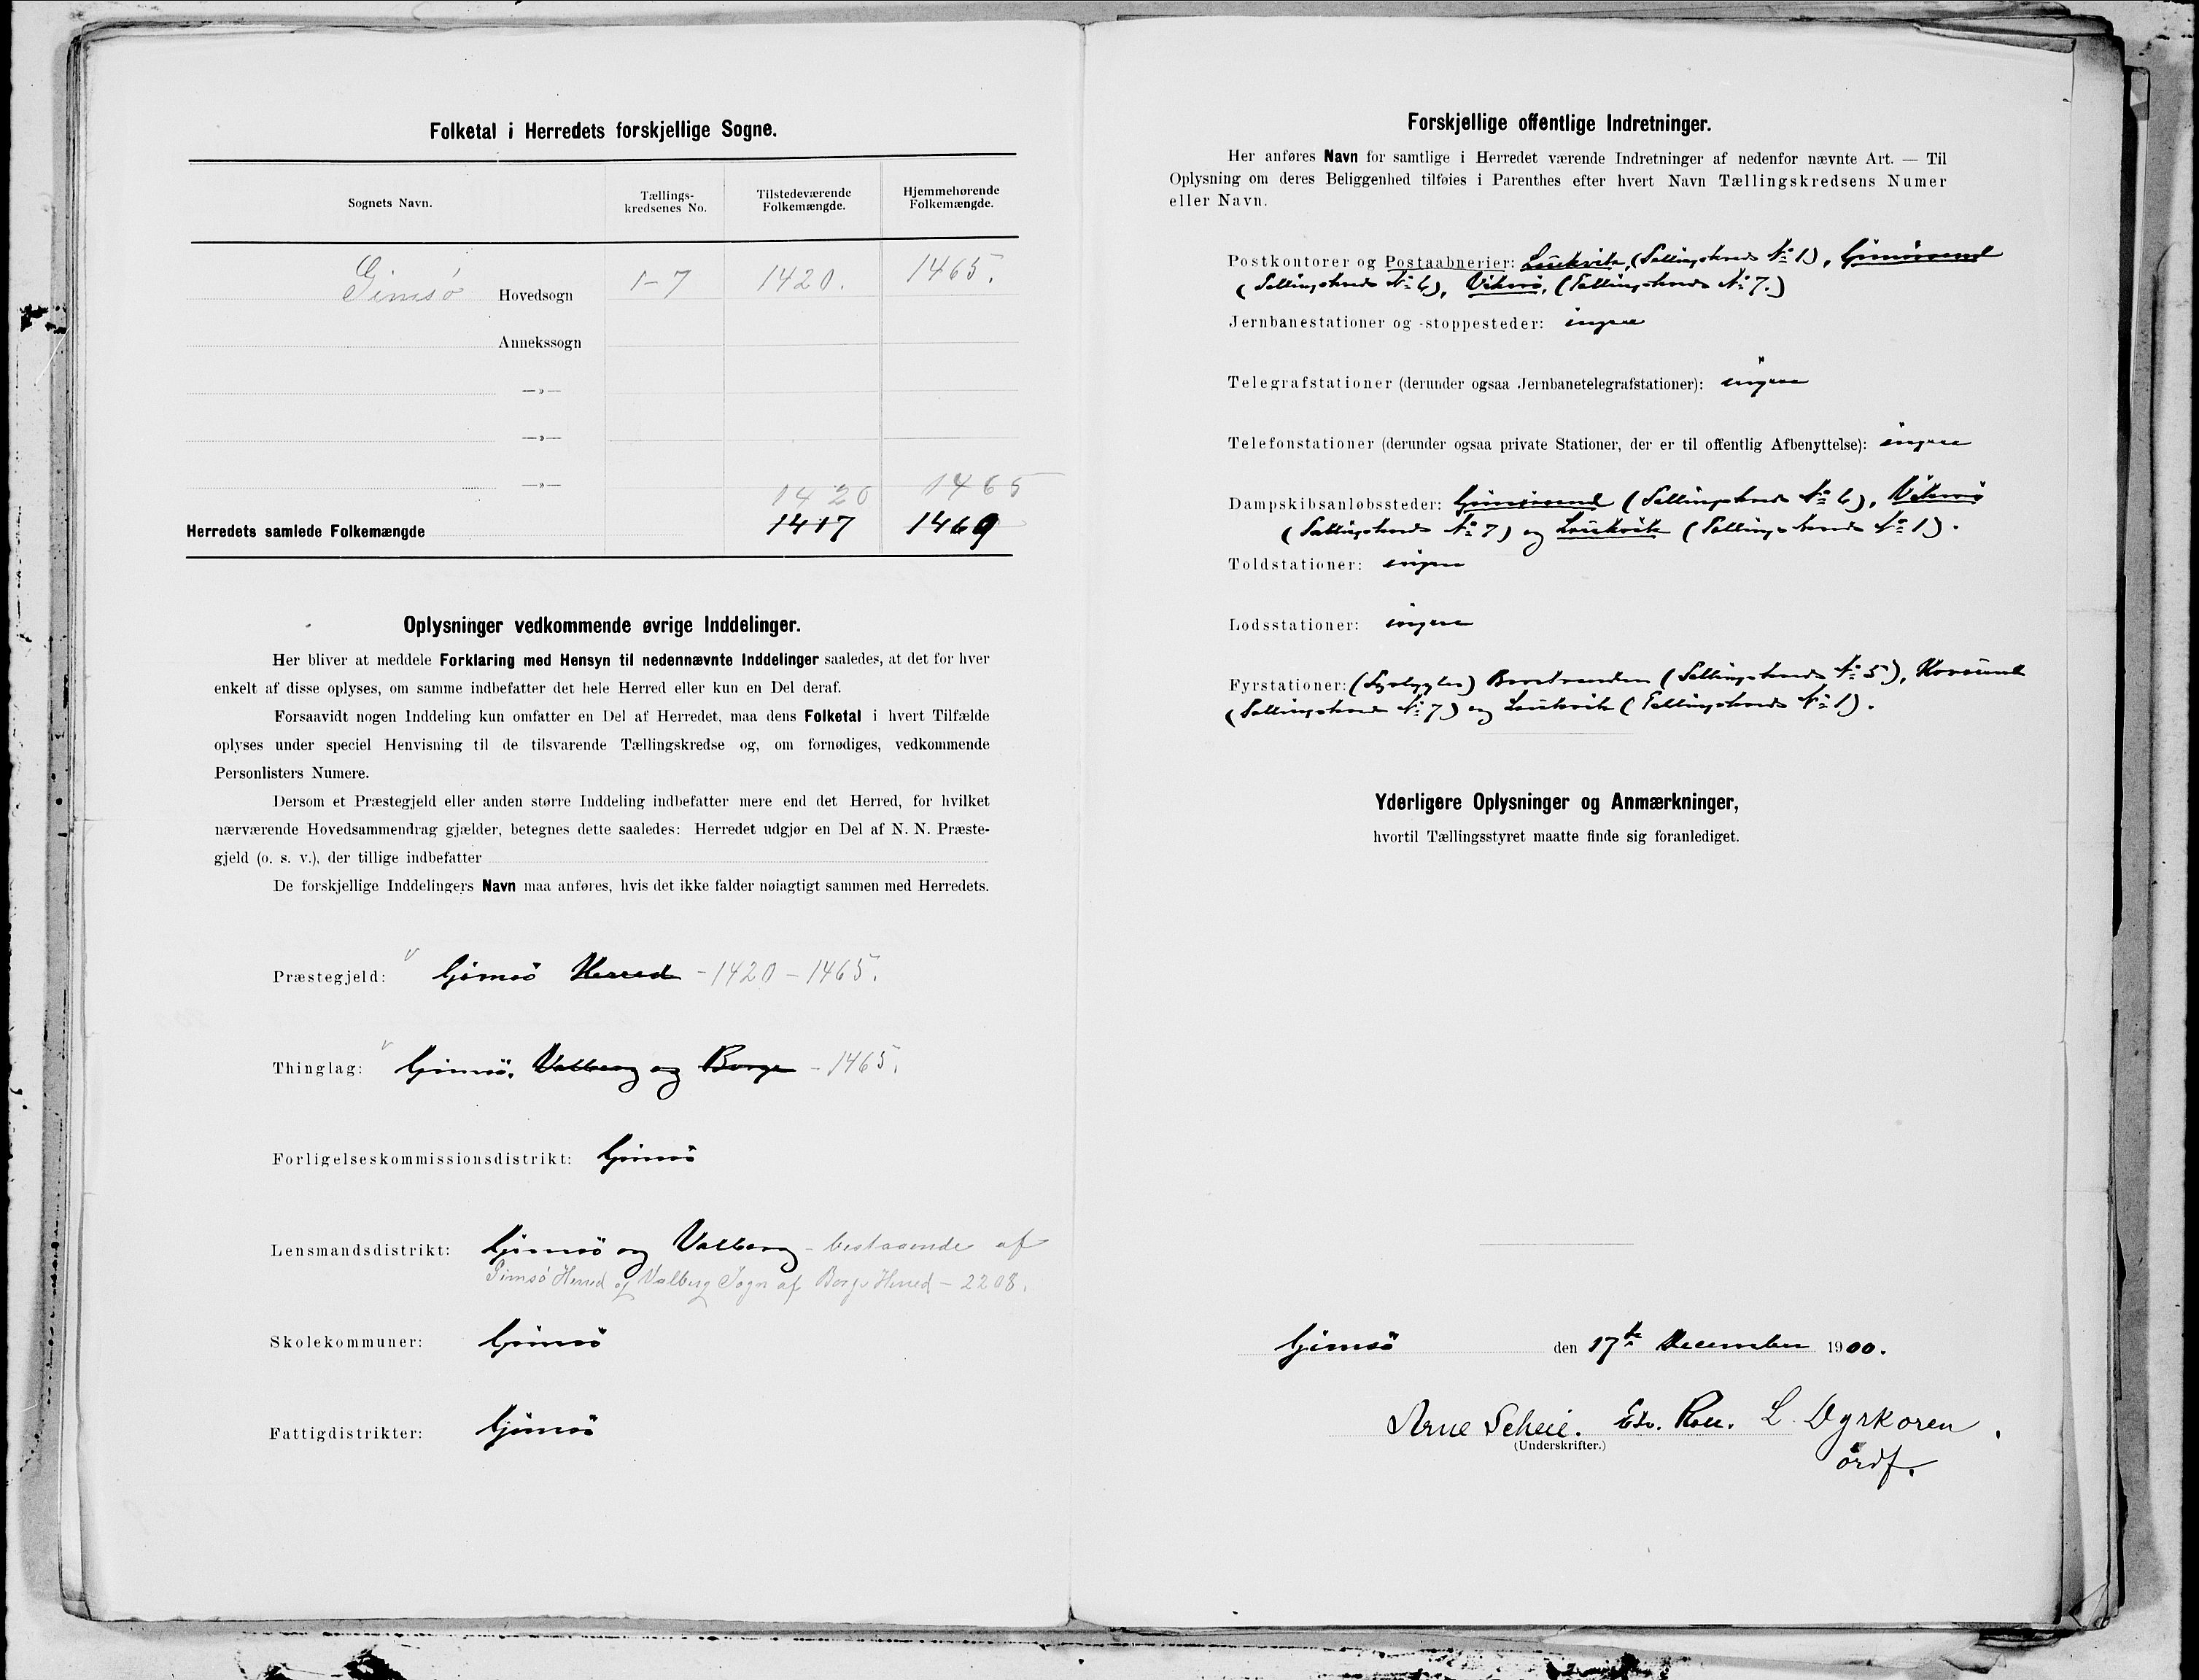 Folketal i Herredets forskjellige Sogne.
Sognets Navn.
Tællings-
kredsenes No.
Tilstedeværende
Folkemængde.
Hjemmehørende
Folkemængde.
Gimsö Hovedsogn 1-7 1420. 1465.
Annekssogn
—»—
—»—
—»—
1420 1465
Herredets samlede Folkemængde 1417 1469
Oplysninger vedkommende øvrige Inddelinger.
Her bliver at meddele Forklaring med Hensyn til nedennævnte Inddelinger saaledes, at det for hver
enkelt af disse oplyses, om samme indbefatter det hele Herred eller kun en Del deraf.
Forsaavidt nogen Inddeling kun omfatter en Del af Herredet, maa dens Folketal i hvert Tilfælde
oplyses under speciel Henvisning til de tilsvarende Tællingskredse og, om fornødiges, vedkommende
Personlisters Numere.
Dersom et Præstegjeld eller anden større Inddeling indbefatter mere end det Herred, for hvilket
nærværende Hovedsammendrag gjælder, betegnes dette saaledes: Herredet udgjør en Del af N. N. Præste-
gjeld (o. s. v.), der tillige indbefatter
De forskjellige Inddelingers Navn maa anføres, hvis det ikke falder nøiagtigt sammen med Herredets.
Præstegjeld: Gimsö Herred - 1420 - 1465.
Thinglag: Gimsö, Valberg og Borge - 1465.
Forligelseskommissionsdistrikt: Gimsö
Lensmandsdistrikt: Gimsö og Valberg - bestaaende af
Gimsö Herred og Valberg Sogn af Borge Herred - 2208.
Skolekommuner: Gimsö
Fattigdistrikter: Gimsö
Forskjellige offentlige Indretninger.
Her anføres Navn for samtlige i Herredet værende Indretninger af nedenfor nævnte Art. — Til
Oplysning om deres Beliggenhed tilføies i Parenthes efter hvert Navn Tællingskredsens Numer
eller Navn.
Postkontorer og Postaabnerier: Laukvik, (Tællingskreds № 1), Gimsösund
(Tællingskreds № 6), (Tællingskreds № 7.)
Jernbanestationer og -stoppesteder: ingen
Telegrafstationer (derunder ogsaa Jernbanetelegrafstationer): ingen
Telefonstationer (derunder ogsaa private Stationer, der er til offentlig Afbenyttelse): ingen
Dampskibsanløbssteder: Gimsösund (Tællingskreds № 6),
(Tællingskreds № 7) og Laukvik (Tællingskreds № 1).
Toldstationer: ingen
Lodsstationer: ingen
Fyrstationer: (Fyrlygter) Barstranden (Tællingskreds № 5),
(Tællingskreds № 7) og Laukvik (Tællingskreds № 1).
Yderligere Oplysninger og Anmærkninger,
hvortil Tællingsstyret maatte finde sig foranlediget.
Gimsö den 17de December 1900.
Arne Scheie. L. Dyrkoren.
(Underskrifter.)
ordf.